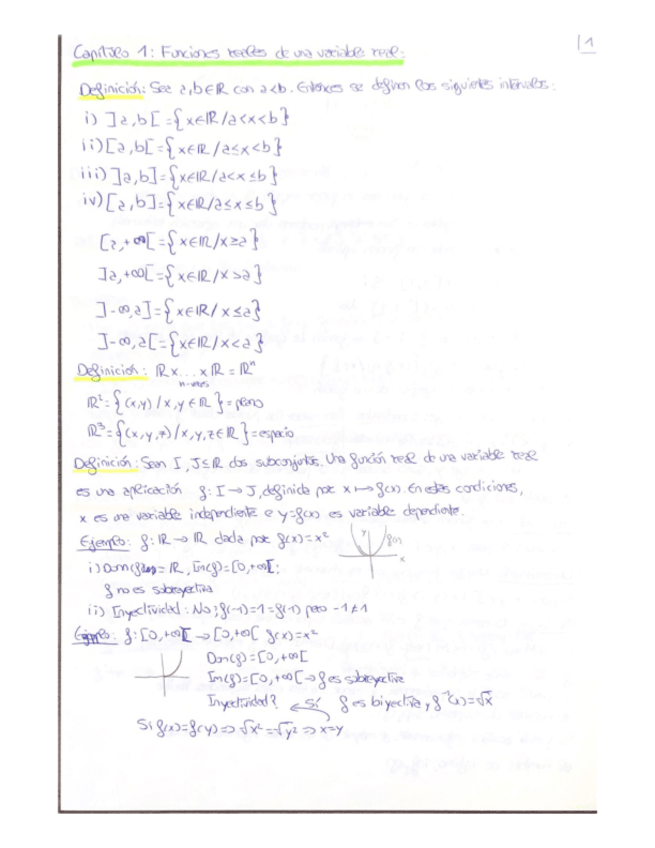 Capítulo 1: Funciones reales de una variable real:
1
Definición: Sea a,b∈ℝ con a<b. Entonces se definen los siguientes intervalos:
i) ]a,b[ = {x∈ℝ/a<x<b}
ii) [a,b[ = {x∈ℝ/a≤x<b}
iii) ]a,b] = {x∈ℝ/a<x≤b}
iv) [a,b] = {x∈ℝ/a≤x≤b}
[a,+∞[ = {x∈ℝ/x≥a}
]a,+∞[ = {x∈ℝ/x>a}
]-∞,a] = {x∈ℝ/x≤a}
]-∞,a[ = {x∈ℝ/x<a}
Definición: ℝx...xℝ = ℝⁿ
n-veces
ℝ² = {(x,y)/x,y∈ℝ} = plano
ℝ³ = {(x,y,z)/x,y,z∈ℝ} = espacio
Definición: Sean I, J⊆ℝ dos subconjuntos. Una función real de una variable real
es una aplicación f: I→J, definida por x↦f(x). En estas condiciones,
x es una variable independiente e y=f(x) es variable dependiente.
Ejemplo: f: ℝ→ℝ dada por f(x)=x² y f(x) x
i) Dom(f)=ℝ, Im(f)=[0,+∞[;
f no es sobreyectiva
ii) Inyectividad: No; f(-1)=1=f(1) pero -1≠1
Ejemplo: f: [0,+∞[→[0,+∞[ f(x)=x²
Dom(f)=[0,+∞[
Im(f)=[0,+∞[→f es sobreyectiva
Inyectividad? Sí f es biyectiva y f⁻¹(x)=√x
Si f(x)=f(y)⇒√x²=√y²⇒x=y